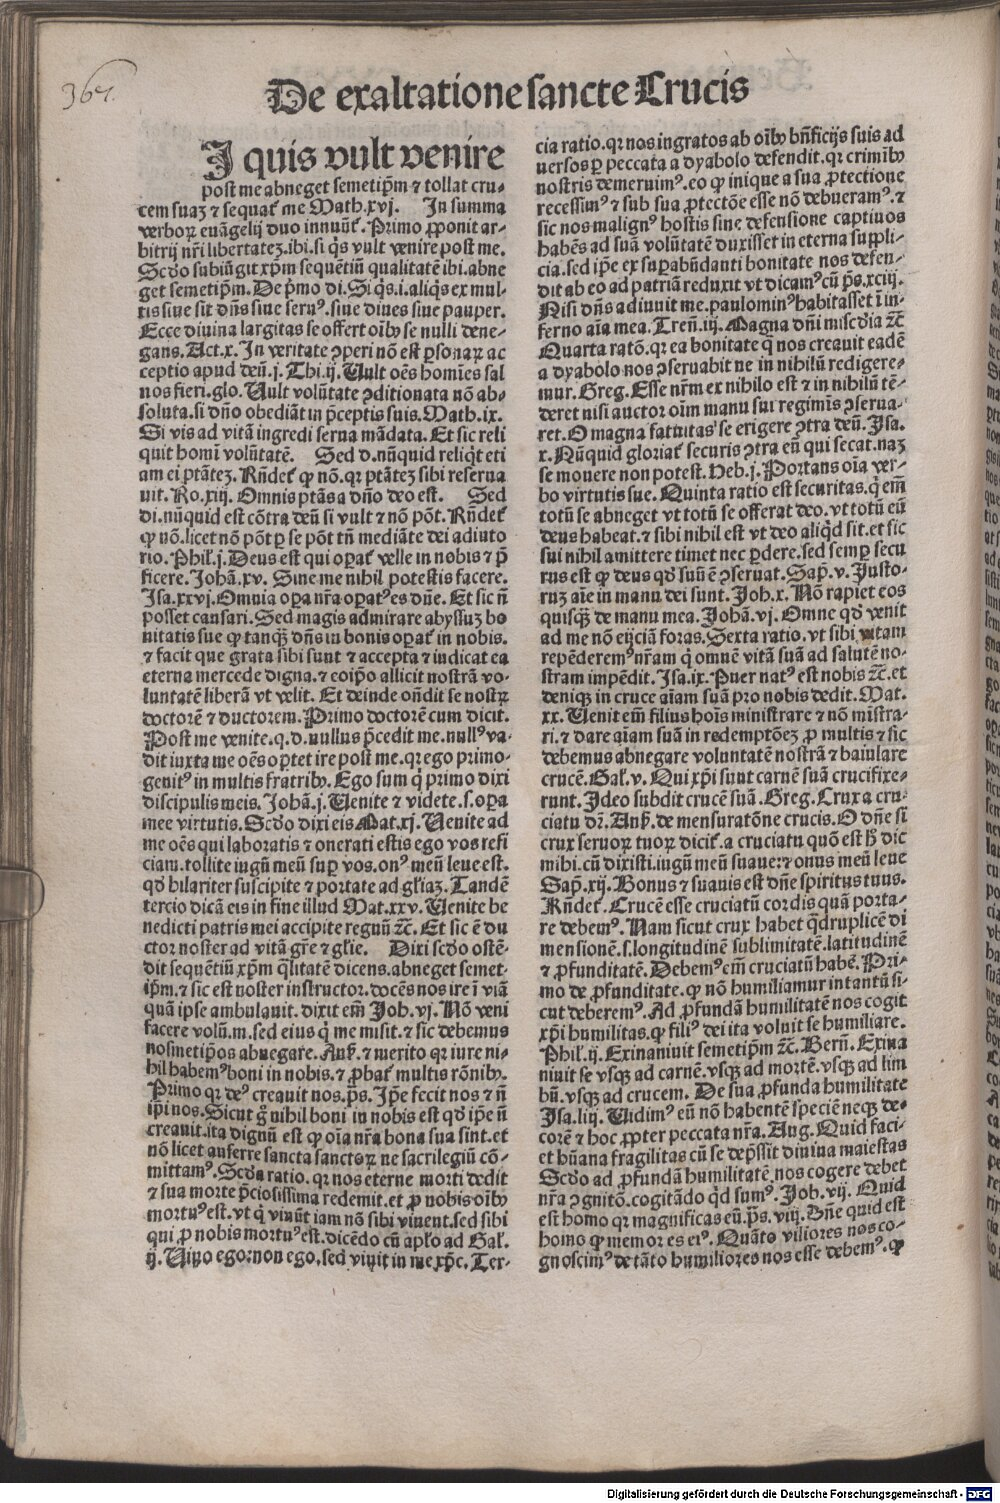 367.
De exaltatione sancte Crucis
I quis vult venire
post me abneget semetip̄m ⁊ tollat cru⸗
cem suaꝫ ⁊ sequat᷑ me Math.xvj. In summa
verboꝝ euāgelij duo innuūt᷑. Primo ꝓponit ar⸗
bitrij nr̄i libertateꝫ.ibi.si q̇s vult venire post me.
Scd̄o subiūgit xp̄m sequētiū qualitatē ibi.abne
get semetip̄m. De p̄mo di. Si q̇s.i.aliq̇s ex mul⸗
tis siue sit dn̄s siue seruꝰ.siue diues siue pauper.
Ecce diuina largitas se offert oībꝰ se nulli dene⸗
gans. Act.x. In veritate ꝯperi nō est ꝑsonaꝝ ac
ceptio apud deū.j. Thi.ij. Vult oēs homīes sal
nos fieri.glo. Vult volūtate ꝯditionata nō ab⸗
soluta.si dn̄o obediāt in p̄ceptis suis. Math.ix.
Si vis ad vitā ingredi serua mādata. Et sic reli
quit homī volūtatē. Sed d.nūquid reliq̇t eti
am ei ptāteꝫ. Rn̄det᷑ ꝙ nō.qꝛ ptāteꝫ sibi reserua
uit. Ro.xiij. Omnis ptās a dn̄o deo est. Sed
di.nūquid est cōtra deū si vult ⁊ nō pōt. Rn̄det᷑
ꝙ nō.licet nō pōt ꝑ se pōt tn̄ mediāte dei adiuto
rio. Phil.j. Deus est qui operat᷑ velle in nobis ⁊ ꝑ
ficere. Johā.xv. Sine me nihil potestis facere.
Isa.xxvj. Omnia oꝑa nr̄a oꝑatꝰ es dn̄e. Et sic n̄
posset causari. Sed magis admirare abyssuꝫ bo
nitatis sue ꝙ tanꝙ̄ dn̄s in bonis oꝑat᷑ in nobis.
⁊ facit que grata sibi sunt ⁊ accepta ⁊ iudicat ea
eterna mercede digna.⁊ eoip̄o allicit nostrā vo⸗
luntatē liberā vt velit. Et deinde on̄dit se nostꝝ
doctorē ⁊ ductorem. Primo doctorē cum dicit.
Post me venite.q.d.nullus p̄cedit me.nullꝰ va⸗
dit iuxta me oēs oꝑtet ire post me.qꝛ ego primo⸗
genitꝰ in multis fratribꝰ. Ego sum q̇ primo dixi
discipulis meis. Johā.j. Venite ⁊ videte.s.oꝑa
mee virtutis. Scd̄o dixi eis Mat.xj. Venite ad
me oēs qui laboratis ⁊ onerati estis ego vos refi
ciam.tollite iugū meū suꝑ vos.onꝰ meū leue est.
qd̄ hilariter suscipite ⁊ portate ad gl̄iaꝫ. Tandē
tercio dicā eis in fine illud Mat.xxv. Venite be
nedicti patris mei accipite regnū ⁊c̄. Et sic ē du
ctor noster ad vitā gr̄e ⁊ gl̄ie. Dixi scd̄o ostē⸗
dit sequētiū xp̄m q̄litatē dicens.abneget semet⸗
ip̄m.⁊ sic est noster instructor.docēs nos ire ī viā
quā ipse ambulauit.dixit em̄ Joh.vj. Nō veni
facere volū.m.sed eius q̇ me misit.⁊ sic debemus
nosmetip̄os abnegare. Anß.⁊ merito qꝛ iure ni⸗
hil habemꝰ boni in nobis.⁊ ꝓbat᷑ multis rōnibꝰ.
Primo qꝛ deꝰ creauit nos.ps̄. Ip̄e fecit nos ⁊ n̄
ip̄i nos. Sicut g̊ nihil boni in nobis est qd̄ ip̄e n̄
creauit.ita dignū est ꝙ oīa nr̄a bona sua sint.et
nō licet auferre sancta sanctoꝝ ne sacrilegiū cō⸗
mittamꝰ. Scd̄a ratio.qꝛ nos eterne morti dedit
⁊ sua morte p̄ciosissima redemit.et ꝓ nobis oībꝰ
mortuꝰ est.vt q̇ viuūt iam nō sibi viuent.sed sibi
qui ꝓ nobis mortuꝰ est.dicēdo cū apl̄o ad Gal̄.
ij. Viuo ego:non ego.sed viuit in me xp̄c. Ter⸗
cia ratio.qꝛ nos ingratos ab oībꝰ bn̄ficijs suis ad
uersos ꝑ peccata a dyabolo defendit.qꝛ crimībꝰ
nostris demeruimꝰ.eo ꝙ inique a sua ꝓtectione
recessimꝰ ⁊ sub sua ꝓtectōe esse nō debueramꝰ.⁊
sic nos malignꝰ hostis sine defensione captiuos
habēs ad suā volūtatē duxisset in eterna suppli⸗
cia.sed ip̄e ex suꝑabūdanti bonitate nos defen⸗
dit ab eo ad patriā reduxit vt dicamꝰ cū ps̄.xciij.
Nisi dn̄s adiuuit me.paulominꝰ habitasset ī in⸗
ferno aīa mea. Tren̄.iij. Magna dn̄i misc̄dia ⁊c̄
Quarta ratō.qꝛ ea bonitate q̄ nos creauit eadē
a dyabolo nos ꝯseruabit ne in nihilū redigere⸗
mur. Greg. Esse nr̄m ex nihilo est ⁊ in nihilū tē⸗
deret nisi auctor oīm manu sui regimīs ꝯserua⸗
ret. O magna fatuitas se erigere ꝯtra deū. Isa.
x. Nūquid gloriat᷑ securis ꝯtra eū qui secat.naꝫ
se mouere non potest. Heb.j. Portans oīa ver⸗
bo virtutis sue. Quinta ratio est securitas.q̇ em̄
totū se abneget vt totū se offerat deo.vt totū eū
deus habeat.⁊ sibi nihil est vt deo aliq̇d sit.et sic
sui nihil amittere timet nec ꝑdere.sed semꝑ secu
rus est ꝙ deus qd̄ suū ē ꝯseruat. Sap̄.v. Justo⸗
ruꝫ aīe in manu dei sunt. Joh.x. Nō rapiet eos
quisꝙ̄ de manu mea. Johā.vj. Omne qd̄ venit
ad me nō eijciā foras. Sexta ratio.vt sibi vitam
repēderemꝰ nr̄am q̇ omnē vitā suā ad salutē no⸗
stram impēdit. Isa.ix. Puer natꝰ est nobis ⁊c̄.et
deniqꝫ in cruce aīam suā pro nobis dedit. Mat.
xx. Venit em̄ filius hoīs ministrare ⁊ nō mīstra⸗
ri.⁊ dare aīam suā in redemptōeꝫ ꝓ multis ⁊ sic
debemus abnegare voluntatē nostrā ⁊ baiulare
crucē. Gal̄.v. Qui xp̄i sunt carnē suā crucifixe⸗
runt. Ideo subdit crucē suā. Greg. Crux a cru⸗
ciatu dr̄. Anß.de mensuratōne crucis. O dn̄e si
crux seruoꝝ tuoꝝ dicit᷑.a cruciatu quō est h̄ dic
mihi.cū dixisti.iugū meū suaue:⁊ onus meū leue
Sap̄.xij. Bonus ⁊ suauis est dn̄e spiritus tuus.
Rn̄det᷑. Crucē esse cruciatū cordis quā porta⸗
re debemꝰ. Nam sicut crux habet q̄druplicē di
mensionē.s.longitudinē sublimitatē.latitudinē
⁊ ꝓfunditatē. Debemꝰ em̄ cruciatū habē. Pri⸗
mo de ꝓfunditate.ꝙ nō humiliamur intantū si⸗
cut deberemꝰ. Ad ꝓfundā humilitatē nos cogit
xp̄i humilitas.ꝙ filiꝰ dei ita voluit se humiliare.
Phil.ij. Exinaniuit semetip̄m ⁊c̄. Bern̄. Exina
niuit se vsqꝫ ad carnē.vsqꝫ ad mortē.vsqꝫ ad lim
bū.vsqꝫ ad crucem. De sua ꝓfunda humilitate
Isa.liij. Vidimꝰ eū nō habentē speciē neqꝫ de⸗
corē ⁊ hoc ꝓpter peccata nr̄a. Aug. Quid faci⸗
et hūana fragilitas cū se dep̄ssit diuina maiestas
Scd̄o ad ꝓfundā humilitatē nos cogere debet
nr̄a ꝯgnitō.cogitādo q̇d sumꝰ. Job.vij. Quid
est homo qꝛ magnificas eū.ps̄.viij. Dn̄e quid est
homo ꝙ memor es eiꝰ. Quāto viliores nos co⸗
gnoscimꝰ de tāto humiliores nos esse debemꝰ.ꝙ
Digitalisierung gefördert durch die Deutsche Forschungsgemeinschaft - DFG